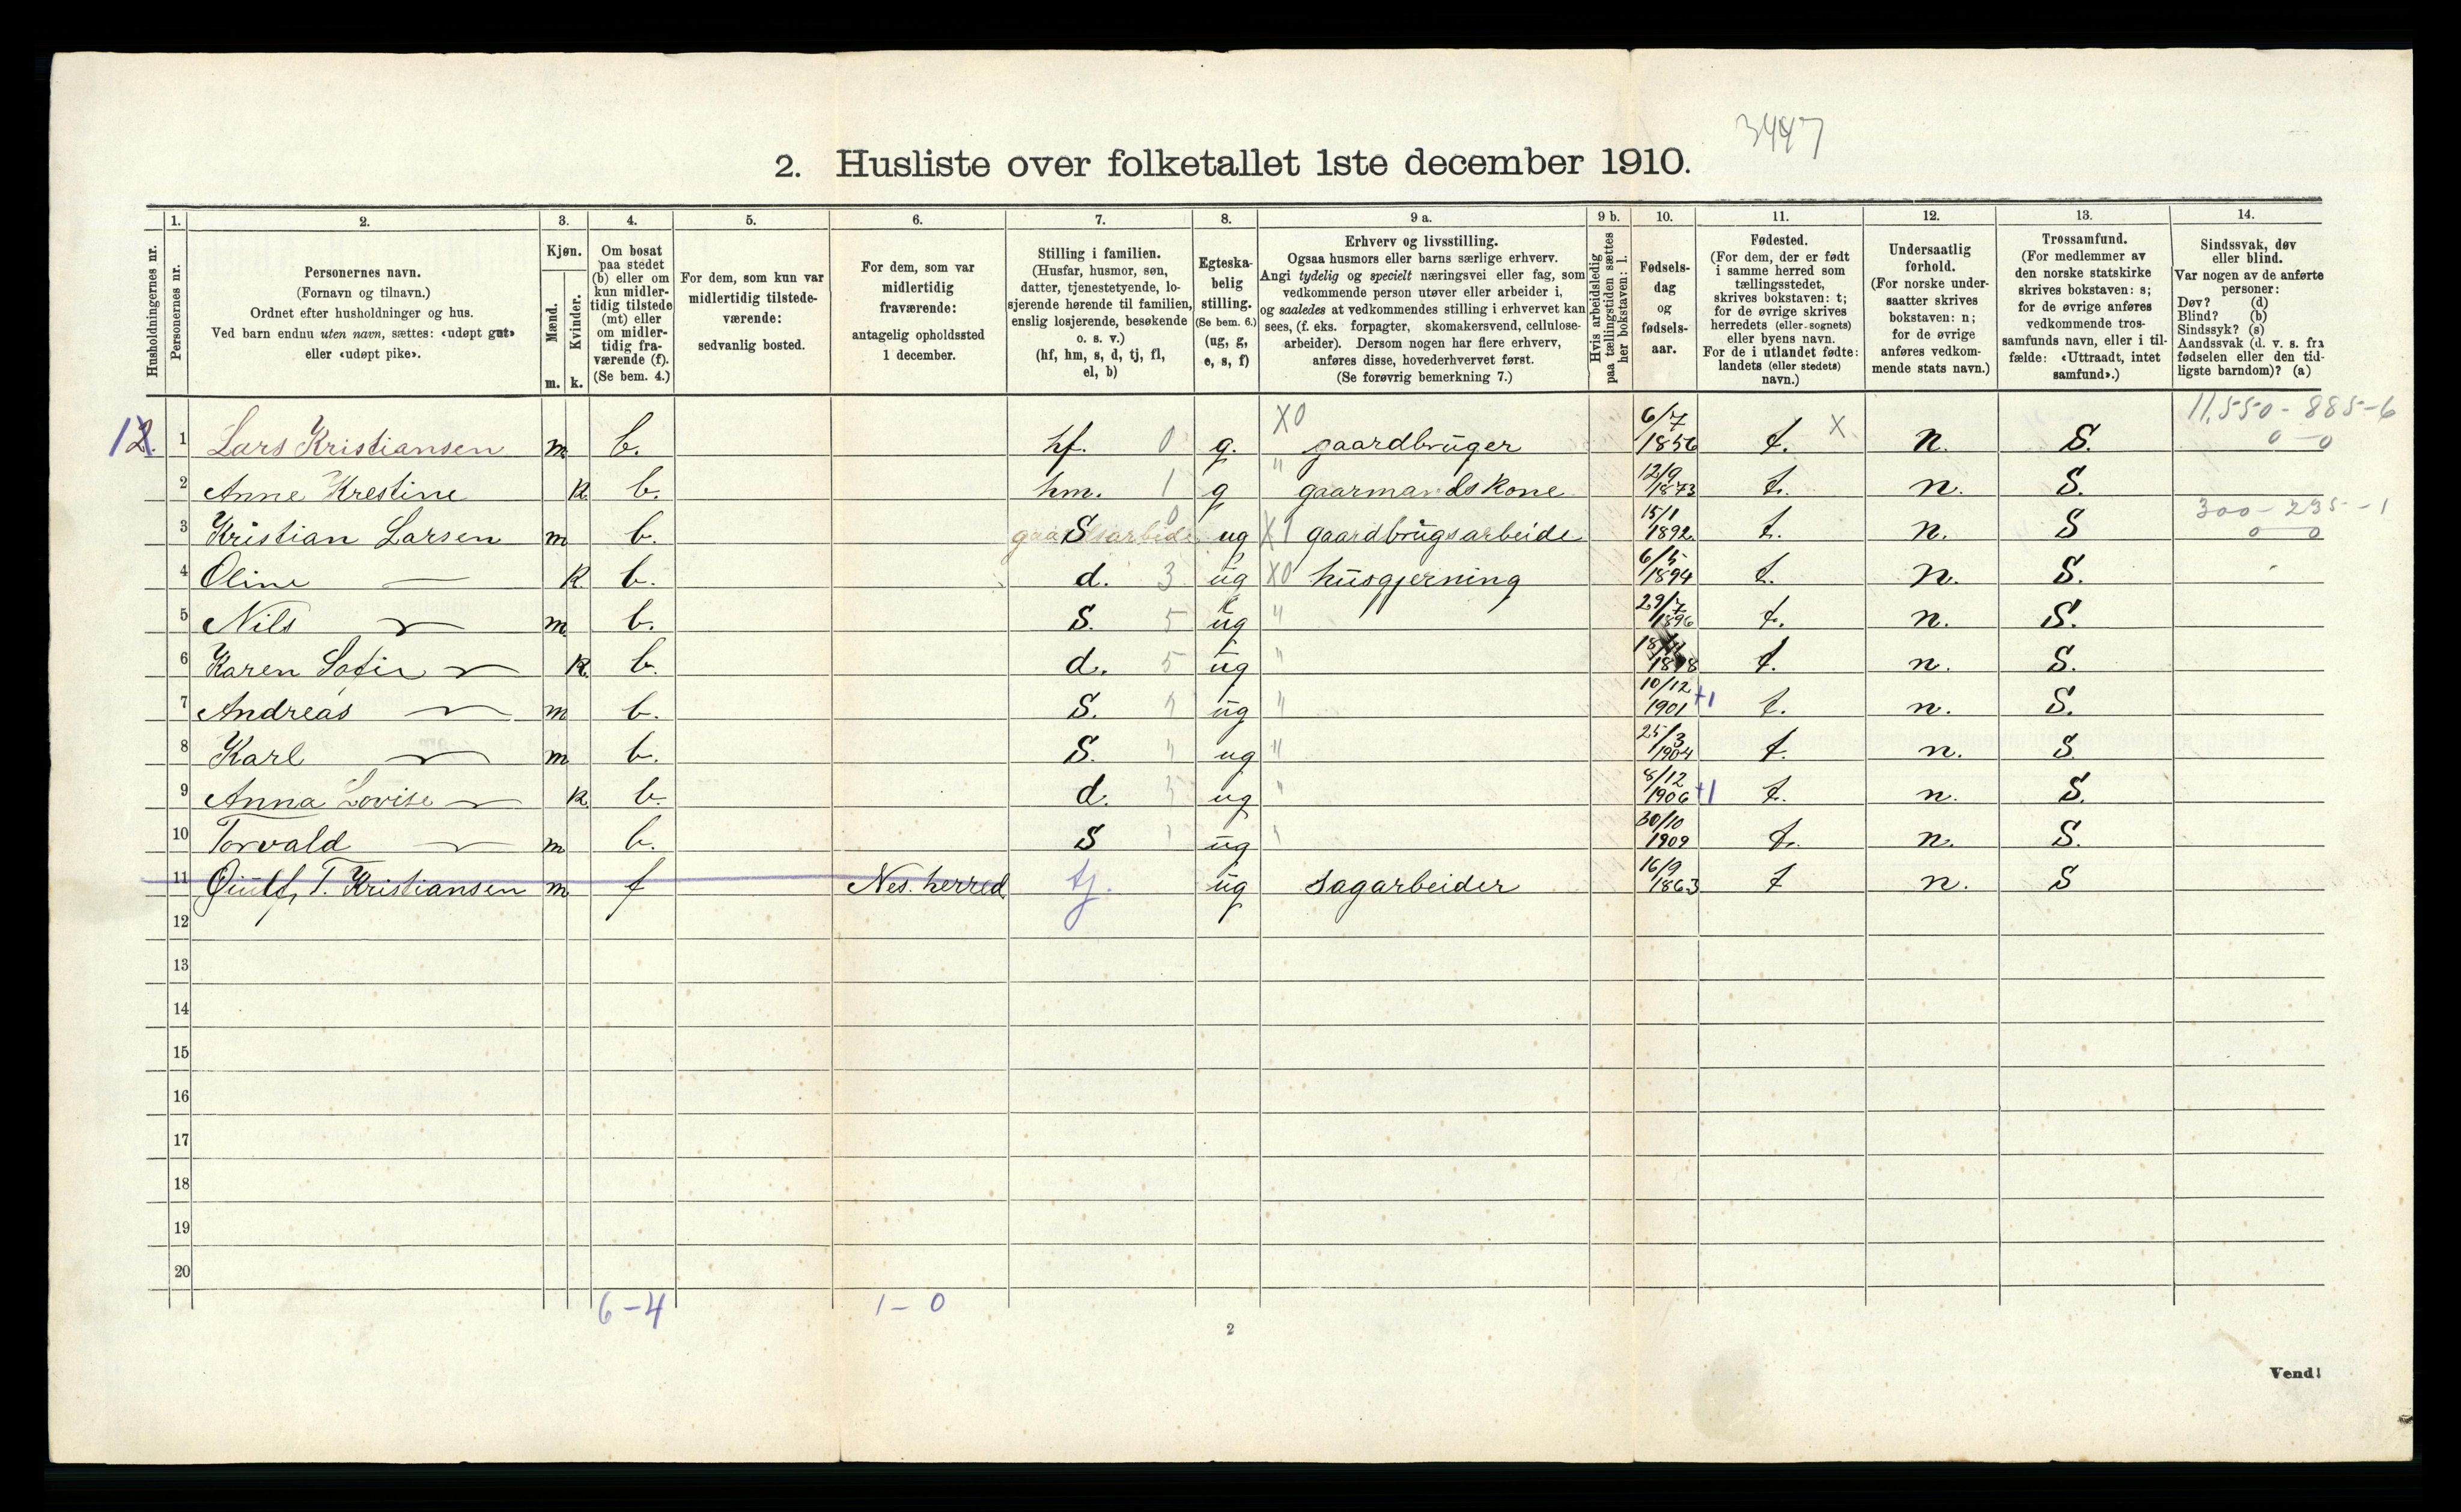 3447
2. Husliste over folketallet 1ste december 1910.
Husholdningernes nr.
1.
Personernes nr.
2.
Personernes navn.
(Fornavn og tilnavn.)
Ordnet efter husholdninger og hus.
Ved barn endnu uten navn, sættes: «udøpt gut»
eller «udøpt pike».
3.
Kjøn.
Mænd.
Kvinder.
m. k.
4.
Om bosat
paa stedet
(b) eller om
kun midler-
tidig tilstede
(mt) eller
om midler-
tidig fra-
værende (f).
(Se bem. 4.)
5.
For dem, som kun var
midlertidig tilstede-
værende:
sedvanlig bosted.
6.
For dem, som var
midlertidig
fraværende:
antagelig opholdssted
1 december.
7.
Stilling i familien.
(Husfar, husmor, søn,
datter, tjenestetyende, lo-
sjerende hørende til familien,
enslig losjerende, besøkende
o. s. v.)
(hf, hm, s, d, tj, fl,
el, b)
8.
Egteska-
belig
stilling.
(Se bem. 6.)
(ug, g,
e, s, f)
9 a.
Erhverv og livsstilling.
Ogsaa husmors eller barns særlige erhverv.
Angi tydelig og specielt næringsvei eller fag, som
vedkommende person utøver eller arbeider i,
og saaledes at vedkommendes stilling i erhvervet kan
sees, (f. eks. forpagter, skomakersvend, cellulose-
arbeider). Dersom nogen har flere erhverv,
anføres disse, hovederhvervet først.
(Se forøvrig bemerkning 7.)
9 b.
Hvis arbeidsledig
paa tællingstiden sættes
her bokstaven: l.
10.
Fødsels-
dag
og
fødsels-
aar.
11.
Fødested.
(For dem, der er født
i samme herred som
tællingsstedet,
skrives bokstaven: t;
for de øvrige skrives
herredets (eller sognets)
eller byens navn.
For de i utlandet fødte:
landets (eller stedets)
navn.)
12.
Undersaatlig
forhold.
(For norske under-
saatter skrives
bokstaven: n;
for de øvrige
anføres vedkom-
mende stats navn.)
13.
Trossamfund.
(For medlemmer av
den norske statskirke
skrives bokstaven: s;
for de øvrige anføres
vedkommende tros-
samfunds navn, eller i til-
fælde: «Uttraadt, intet
samfund».)
14.
Sindssvak, døv
eller blind.
Var nogen av de anførte
personer:
Døv? (d)
Blind? (b)
Sindssyk? (s)
Aandssvak (d. v. s. fra
fødselen eller den tid-
ligste barndom)? (a)
12. 1 Lars Kristiansen m b. hf. 0 g. X0 gaardbruger 6/7 1856 t. X n. S. 11,550 - 885-6 0-0
2 Anne Krestine k b. hm. 1 g " gaarmandskone 12/9 1873 t. n. S.
3 Kristian Larsen m b. S 0 ug X1 gaardbrugsarbeide 15/1 1892 t. n. S 300 - 235 - 1 0 0
4 Oline — k b. d. 3 ug X0 husgjerning 6/5 1894 t. n. S.
5 Nils — m b. S. 5 ug " 29/7 1896 t. n. S.
6 Karen Sofie — k b. d. 5 ug " 1898 t. n. S.
7 Andreas — m b. S. ug " 10/12 1901 +1 t. n. S.
8 Karl — m b. S. ug " 25/3 1904 t. n. S.
9 Anna Lovise — k b. d. ug " 8/12 1906 +1 t. n. S.
10 Torvald — m b. S ug " 30/10 1909 t. n. S.
11 T. Kristiansen m f Nes. herred tj. ug sagarbeider 16/9 1863 t n. S
12
13
14
15
16
17
18
19
20
6-4 1-0
2
Vend!